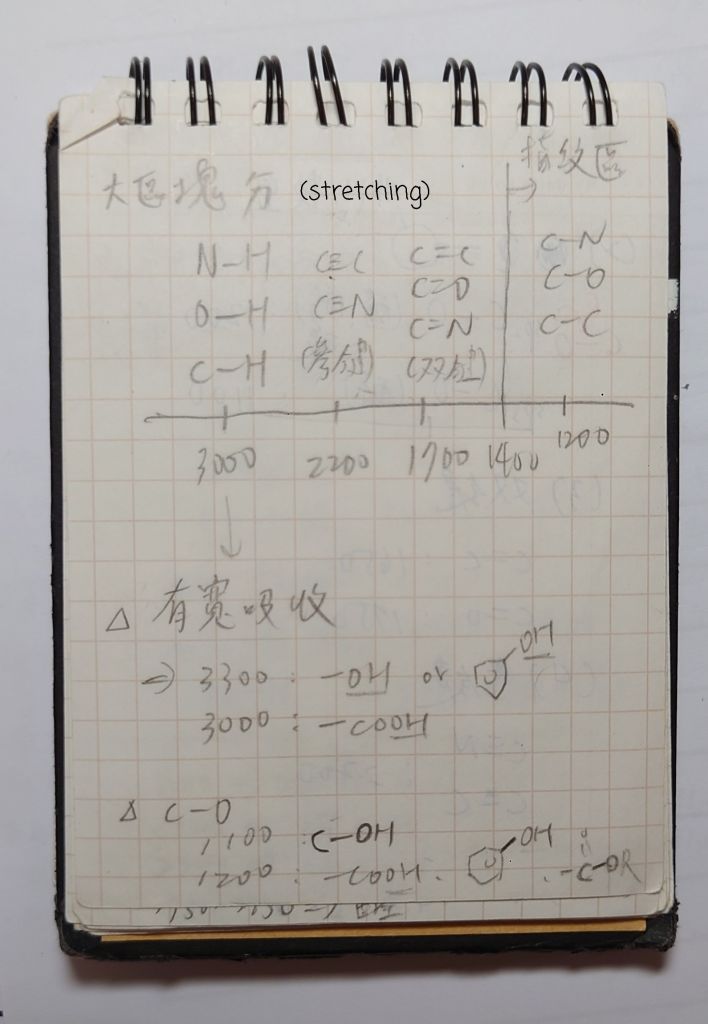 指紋區
大區塊分 (stretching)
N-H C≡C C=C C-N
O-H C≡N C=O C-O
C-H (叁鍵) C=N C-C
(双鍵)
3000 2200 1700 1400 1200
△ 有寬吸收
⇒ 3300 : -OH or OH
3000 : -COOH
△ C-O
1100 : C-OH
1200 : -COOH . OH . -C-OR